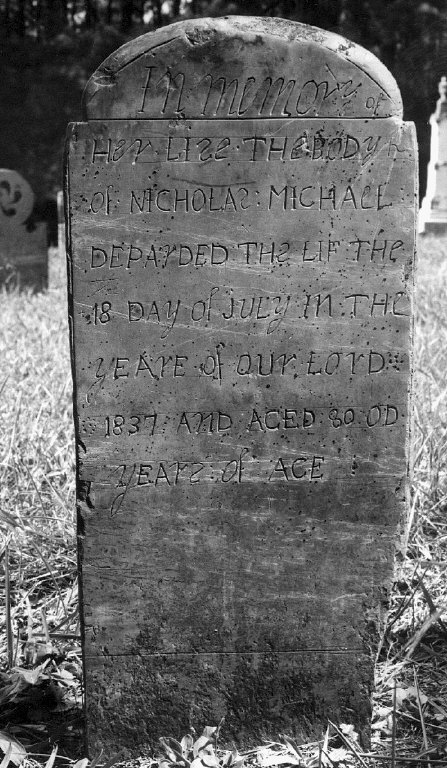 In memory of
HEr LIEE THE BODY
of NICHOLAS MICHALL
DEPARDED THE LIF THE
18 DAY of JULY IN THE
YEARE of OUR LORD
1837 AND AGED 80 OD
YEARS of AGE